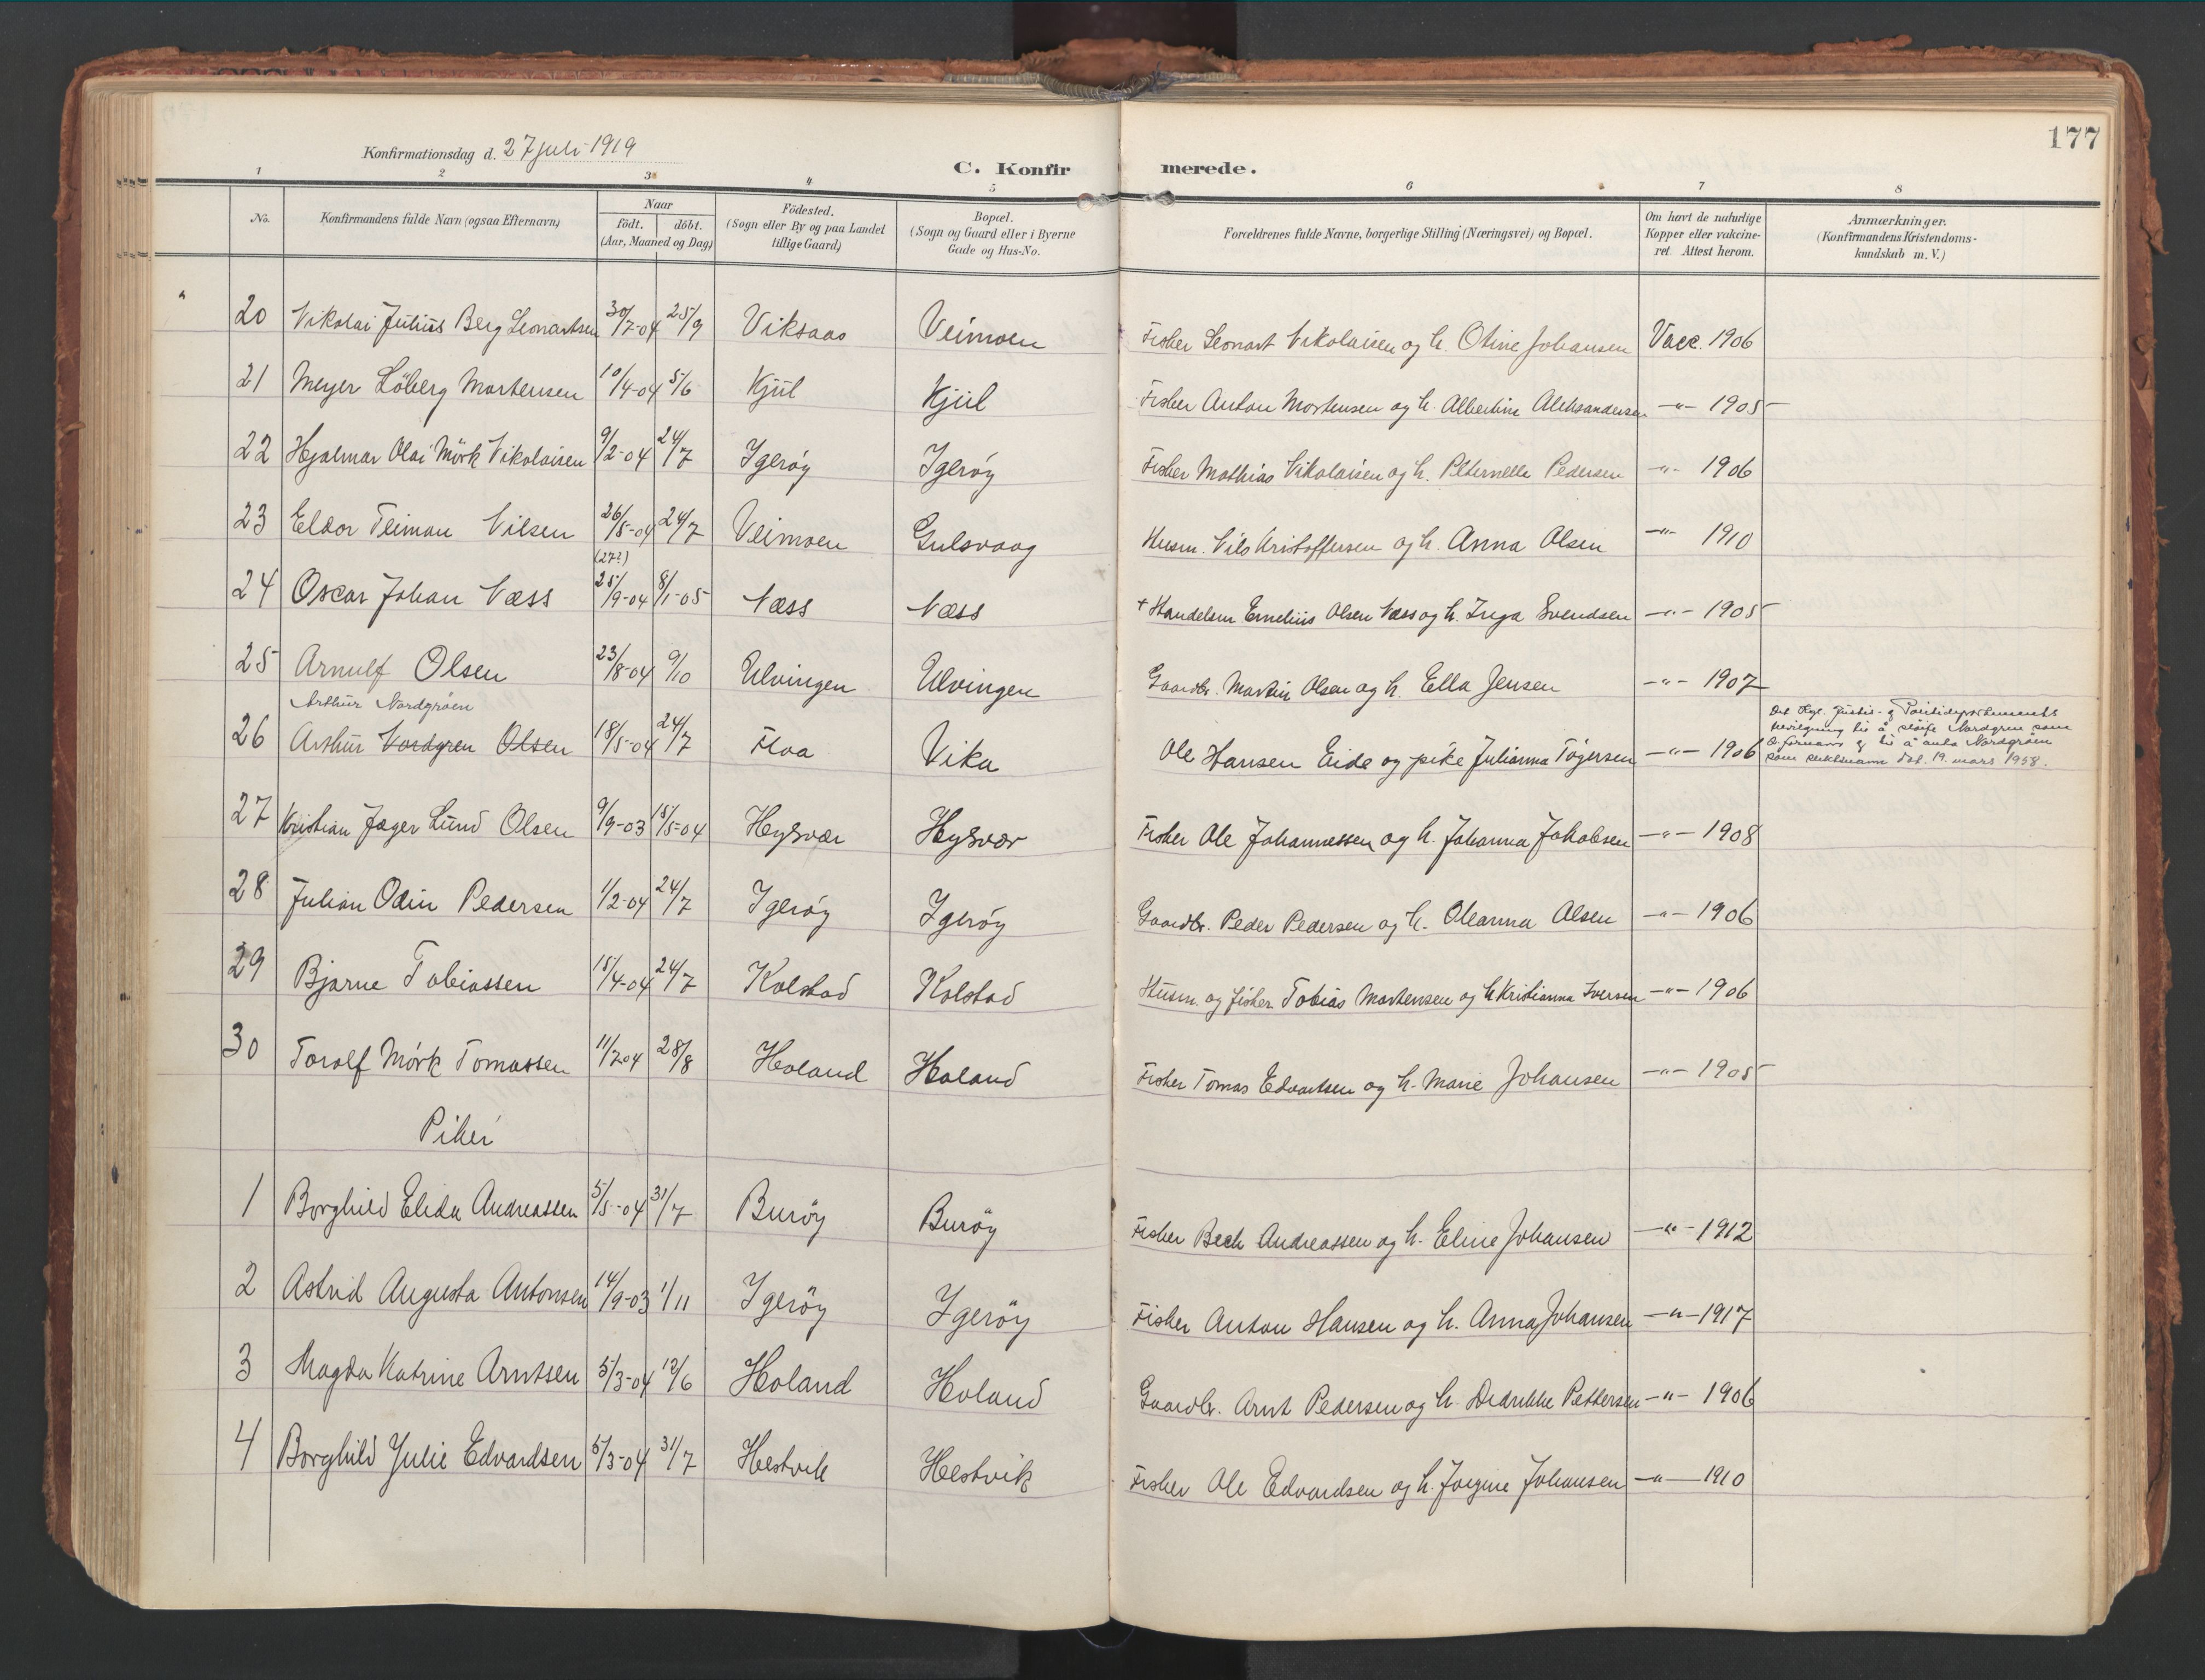 177
Konfirmationsdag d. 27 juli 1919
C. Konfirmerede.
1 2 3 4 5 6 7 8
No. Konfirmandens fulde Navn (ogsaa Efternavn) Naar födt. döbt. (Aar, Maaned og Dag) Födested. (Sogn eller By og paa Landet tillige Gaard) Bopæl. (Sogn og Gaard eller i Byerne Gade og Hus-No. Forældrenes fulde Navne, borgerlige Stilling (Næringsvei) og Bopæl. Om havt de naturlige Kopper eller vakcineret. Attest herom. Anmærkninger. (Konfirmandens Kristendomskundskab m. V.)
20 Nikolai Julius Berg Leonartsen 30/7-04 25/9 Viksaas Veimoen Fisker Leonart Nikolaisen og h. Otine Johansen Vacc. 1906
21 Meyer Löberg Mortensen 10/4-04 5/6 Kjul Kjul Fisker Anton Mortensen og h. Albertine Aleksandersen -"- 1905
22 Hjalmar Olai Mörk Nikolaisen 9/2-04 24/7 Igeröy Igeröy Fisker Mathias Nikolaisen og h. Petternelle Pedersen -"- 1906
23 Eldor Teiman Nilsen 26/5-04 24/7 Veimoen Gulsvaag Husm. Nils Kristoffersen og h. Anna Olsen -"- 1910
(27?)
24 Oscar Johan Næss 25/9-04 8/1-05 Næss Næss + Handelsm Emelius Olsen Næss og h. Inga Svendsen -"- 1905
25 Arnulf Olsen 23/8-04 9/10 Ulvingen Ulvingen Gaardbr. Martin Olsen og h. Ella Jensen -"- 1907
Arthur Nordgröen
26 Arthur Nordgren Olsen 18/5-04 24/7 Floa Vika Ole Hansen Eide og pike Julianna Tögersen -"- 1906
Det Kgl. Justis- og Politidepartements
bevilgning til å sløife Nordgren som
fornavn og til å anta Nordgröen
som slektsnavn dat. 19. mars 1958.
27 Kristian Jæger Lund Olsen 9/9-03 15/5-04 Hysvær Hysvær Fisker Ole Johannessen og h. Johanna Jakobsen -"- 1908
28 Julian Odin Pedersen 1/2-04 24/7 Igeröy Igeröy Gaardbr. Peder Pedersen og h. Oleanna Olsen -"- 1906
29 Bjarne Tobiassen 15/4-04 24/7 Kolstad Kolstad Husm. og fisker Tobias Mortensen og h Kristianna Iversen -"- 1906
30 Torolf Mörk Tomassen 11/7 04 28/8 Holand Holand Fisker Tomas Edvartsen og h. Marie Johansen -"- 1905
Piker
1 Borghild Elida Andreassen 5/5-04 31/7 Buröy Buröy Fisker Bech Andreassen og h. Eline Johansen -"- 1912
2 Astrid Augusta Antonsen 14/9-03 1/11 Igeröy Igeröy Fisker Anton Hansen og h. Anna Johansen -"- 1917
3 Magda Katrine Arntsen 5/3-04 12/6 Holand Holand Gaardbr. Arnt Pedersen og h. Didrikke Pettersen -"- 1906
4 Borghild Julie Edvardsen 5/3-04 31/7 Hestvik Hestvik Fisker Ole Edvardsen og h. Jorgine Johansen -"- 1910